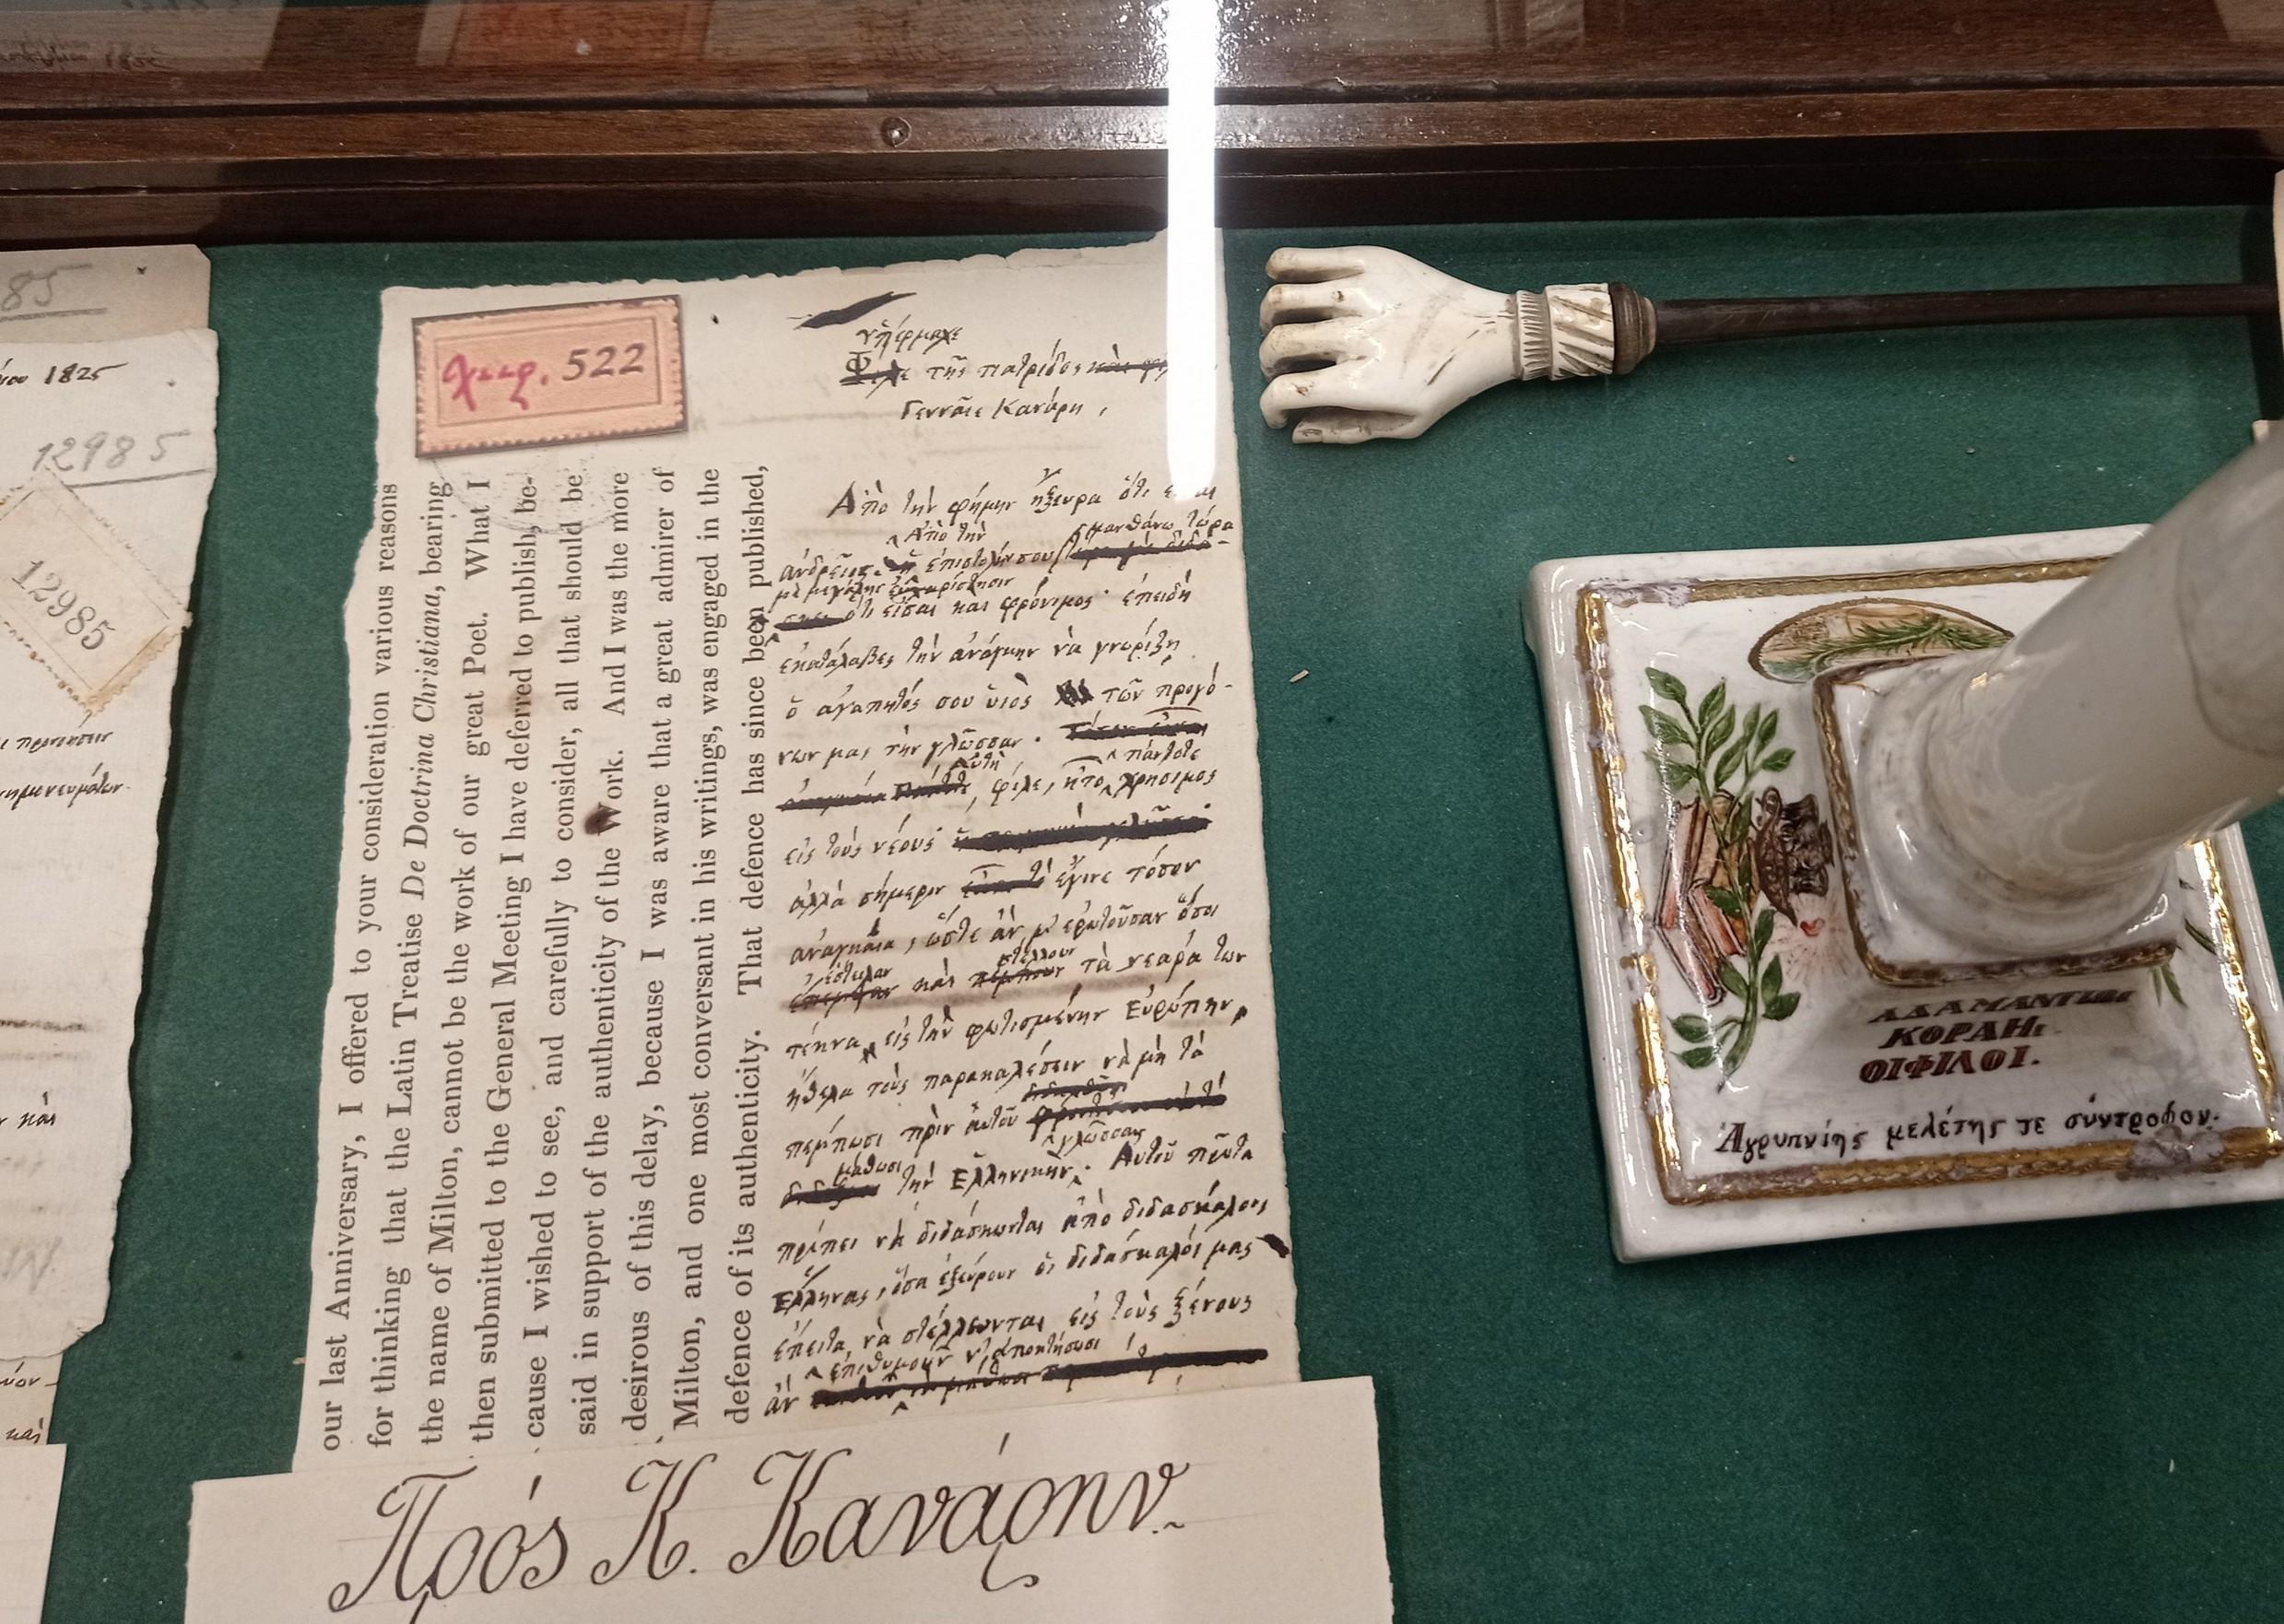 85
ίου 1825
12985
12985
καὶ
καὶ
χειρ. 522
our last Anniversary, I offered to your consideration various reasons
for thinking that the Latin Treatise De Doctrina Christiana, bearing
the name of Milton, cannot be the work of our great Poet. What I
then submitted to the General Meeting I have deferred to publish, be-
cause I wished to see, and carefully to consider, all that should be
said in support of the authenticity of the Work. And I was the more
desirous of this delay, because I was aware that a great admirer of
Milton, and one most conversant in his writings, was engaged in the
defence of its authenticity. That defence has since been published,
ὑπέρμαχε
Φίλε τῆς πατρίδος καὶ
Γενναῖε Κανάρη,
Ἀπὸ τὴν φήμην ἤξευρα ὅτι
Ἀπὸ τὴν μανθάνω τώρα
ἀνδρεῖος. ἐπιστολήν σου
μὲ μεγάλην εὐχαρίστησιν
ὅτι εἶσαι καὶ φρόνιμος· ἐπειδὴ
ἐκατάλαβες τὴν ἀνάγκην νὰ γνωρίζῃ
ὁ ἀγαπητός σου υἱὸς τῶν προγό-
νων μας τὴν γλῶσσαν.
αὐτὴ πάντοτε
φίλε, ἦτο χρήσιμος
εἰς τοὺς νέους·
ἀλλὰ σήμερον ἔγινε τόσον
ἀναγκαία, ὥστε ἂν μ' ἐρωτοῦσαν ὅσοι
ἔστειλαν στέλλουν
καὶ τὰ νεαρά των
τέκνα εἰς τὴν φωτισμένην Εὐρώπην,
ἤθελα τοὺς παρακαλέσειν νὰ μὴ τὰ
πέμπωσι πρὶν αὐτοῦ
μάθωσι γλῶσσαν
τὴν Ἑλληνικὴν. Αὐτοῦ πρῶτα
πρέπει νὰ διδάσκωνται ἀπὸ διδασκάλους
Ἕλληνας, ὅσα ἐξεύρουν οἱ διδάσκαλοί μας
ἔπειτα νὰ στέλλωνται εἰς τοὺς ξένους
ἐπιθυμοῦν ν' ἀποκτήσωσι
ἂν
Πρὸς Κ. Κανάρην.
ΑΔΑΜΑΝΤΙΩι
ΚΟΡΑΗι
ΟΙ ΦΙΛΟΙ.
Ἀγρυπνίης μελέτης τε σύντροφον.